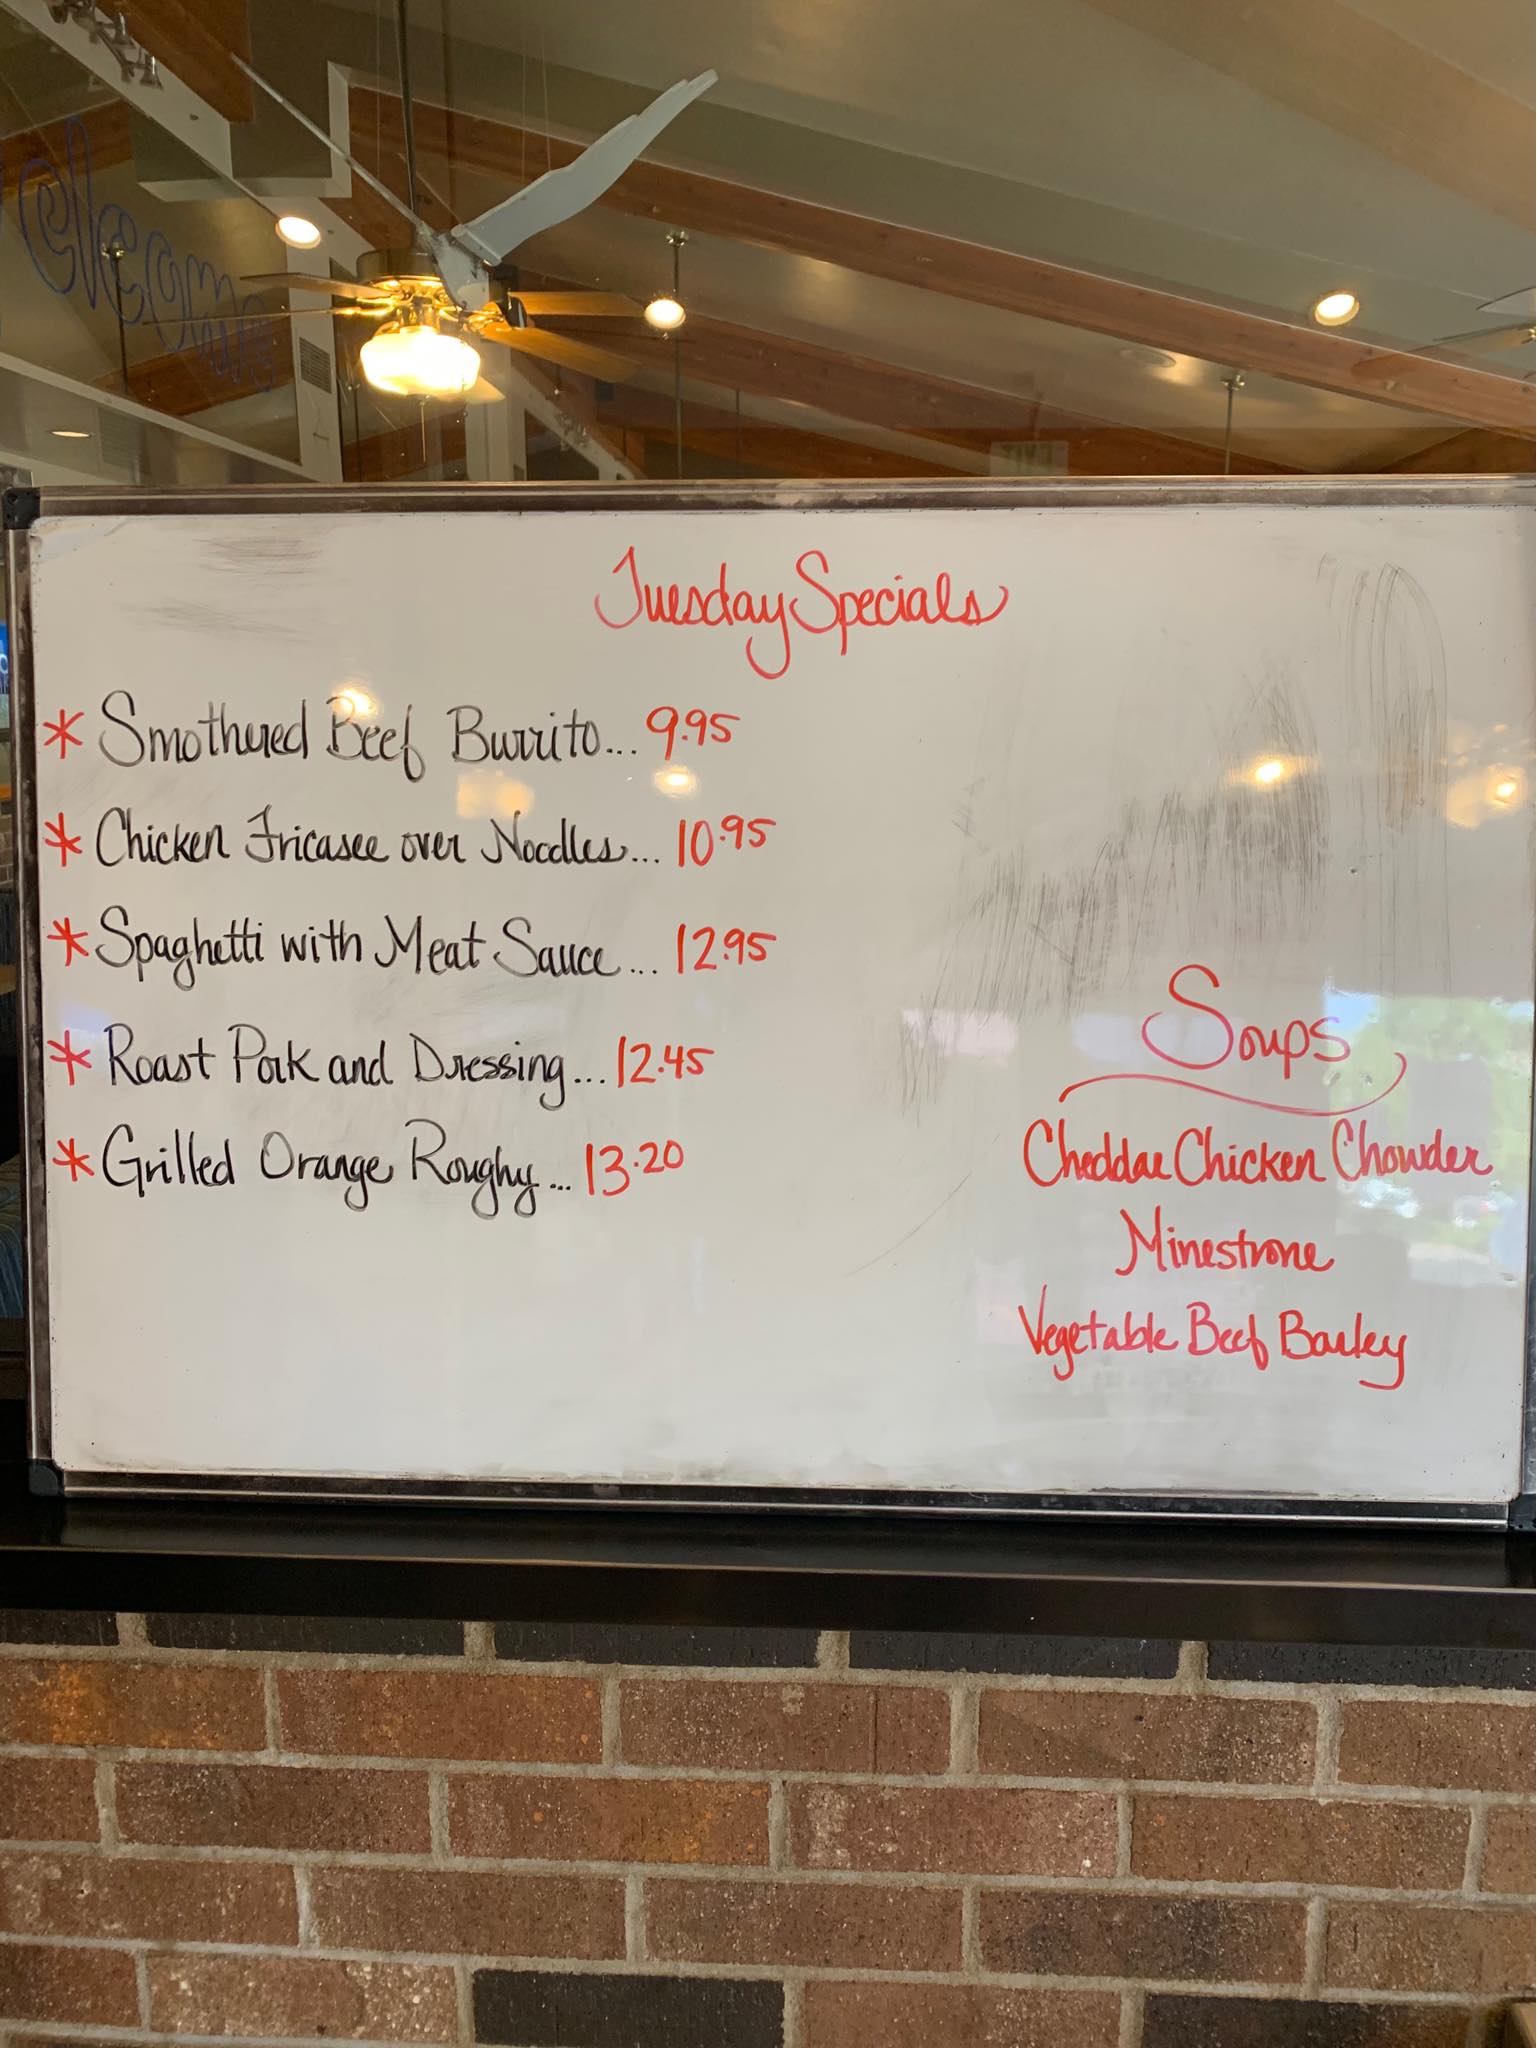 Welcome
EXIT
Tuesday Specials
* Smothered Beef Burrito... 9.95
* Chicken Fricasee over Noodles... 10.95
* Spaghetti with Meat Sauce... 12.95
* Roast Pork and Dressing... 12.45
* Grilled Orange Roughy... 13.20
Soups
Cheddar Chicken Chowder
Minestrone
Vegetable Beef Barley